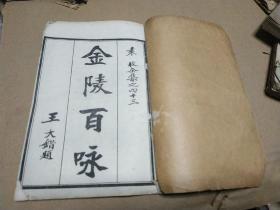 秦
收金集之四十三
金陵百咏
王大錯題